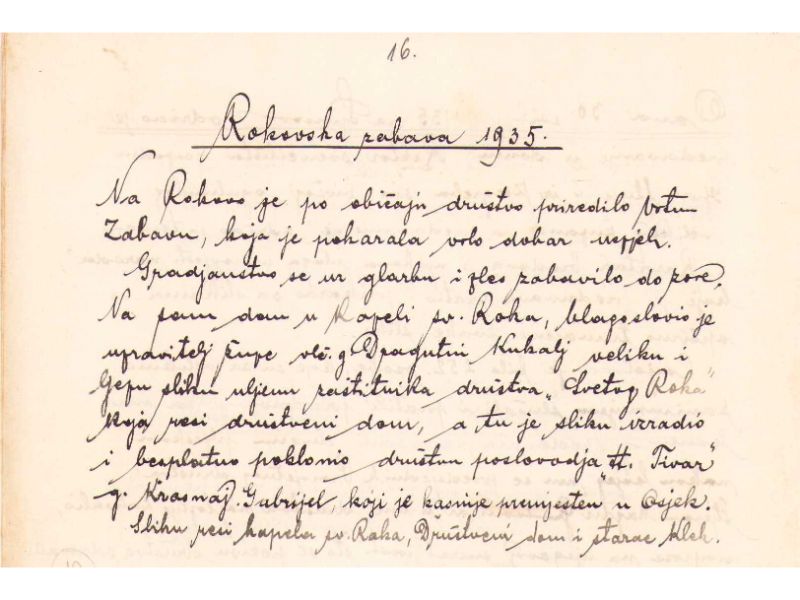 16.
Rokovska zabava 1935.
Na Rokovo je po običaju društvo priredilo vrtnu
Zabavu, koja je pokazala vrlo dobar uspjeh.
Gradjanstvo se uz glazbu i ples zabavilo do zore.
Na sam dan u Kapeli sv. Roka, blagoslovio je
upravitelj župe vlč. g. Dragutin Kukalj veliku i
ljepu sliku uljenu zaštitnika društva „Svetog Roka"
koja resi društveni dom, a tu je sliku izradio
i besplatno poklonio društvu poslovodja „Tivar"
g. Krasnaj Gabrijel, koji je kasnije premješten u Osjek.
Sliku resi kapela sv. Roka, Društveni dom i starac Klek.